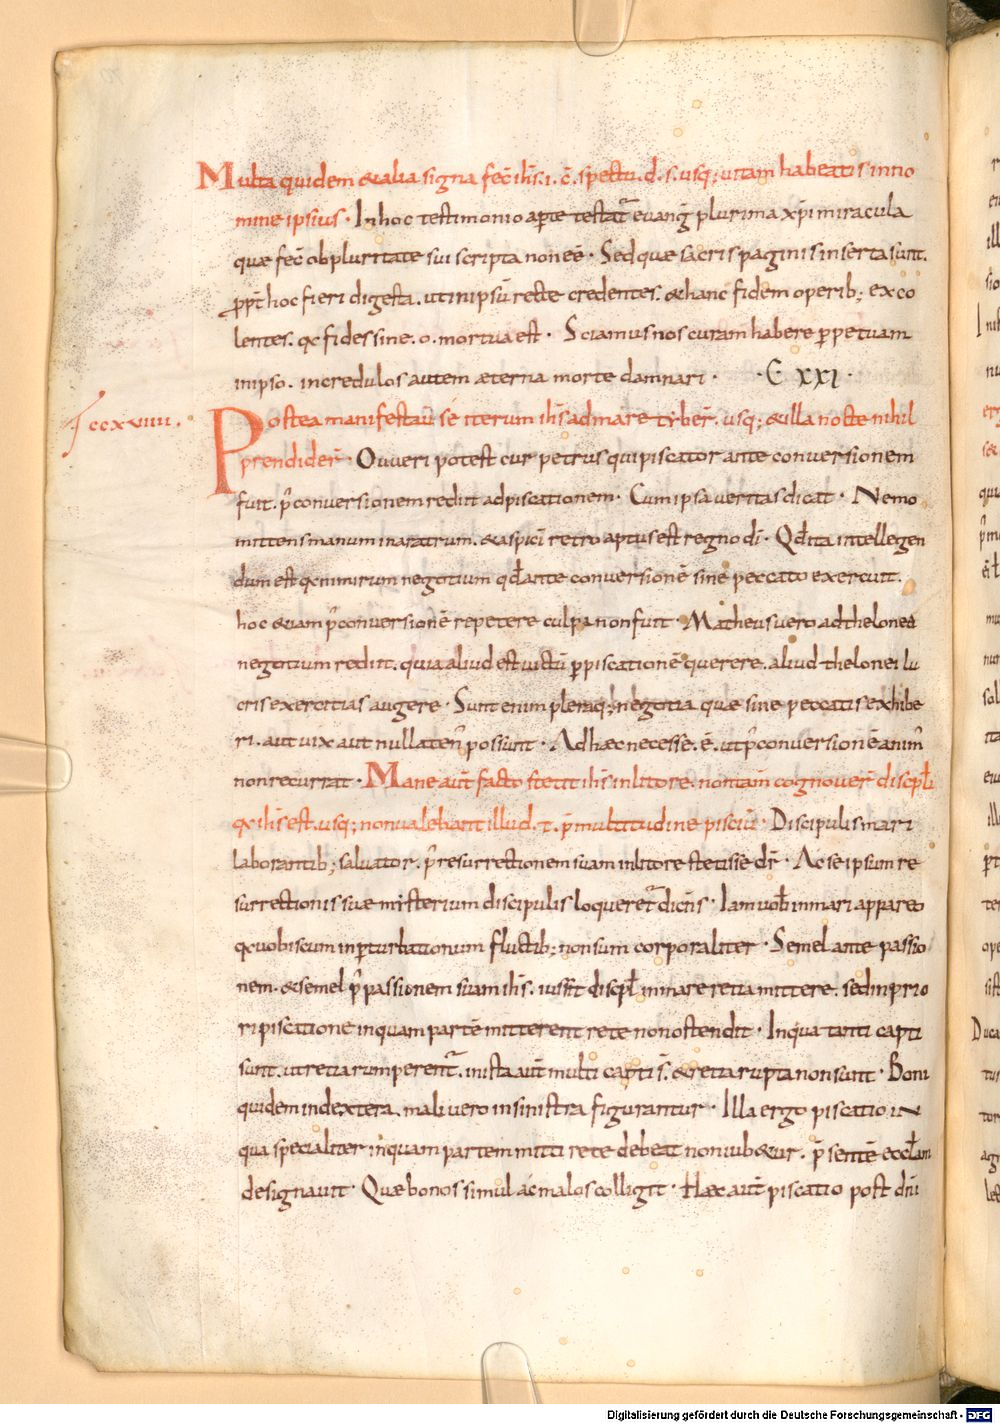 Multa quidem & alia signa fec̄ ih̄s. i. c̄. spectu. d. s. usq; uitam habeatis in no
mine ipsius · In hoc testimonio aperte testat̄ euang̃ plurima xp̄i miracula
quæ fec̄ ob pluritate sui scripta non eē · Sed quæ sacris paginis inserta sunt.
ꝓpt̄ hoc fieri digesta. ut in ipsū recte credentes. & hanc fidem operib; exco
lentes. qc fides sine. o. mortua est · Sciamus nos curam habere ꝑpetuam
in ipso. incredulos autem æterna morte damnari · · C XXI ·
ccxviiii.
Postea manifestau̅ sē iterum ih̄s ad mare tyber̄. usq; & illa nocte nihil
prendider̄ · Queri potest cur petrus qui piscator ante conuersionem
fuit. p̄ conuersionem rediit ad piscationem · Cum ipsa ueritas dicat · Nemo
mittens manum in aratrum. & aspici ̄ retro aptus est regno dī · Qd̄ ita intellegen
dum est qc nimirum negotium qd̄ ante conuersionē sine peccato exercuit.
hoc & iam p̄ conuersionē repetere culpa non fuit · Matheus uero ad thelonea
negotium rediit. quia aliud est uictū ꝑ piscationē querere. aliud thelonei lu
cris exercitias augere · Sunt enim pleraq; negotia quæ sine peccatis exhibe
ri. aut uix aut nullaten̄ possunt · Ad hæc necesse. ē. ut p̄ conuersionē anim̄
non recurrat · Mane aūt facto stetit ih̄s in litore. non tam̄ cognouer̄ discipl̄i
qc ih̄s est. usq; non ualebant illud. t. p̄ multitudine pisciū · Discipulis mari
laborantib; saluator. p̄ resurrectionem suam in litore stetisse dr̄ · Ac se ipsum re
surrectionis suæ misterium discipulis loqueret̄ dicens · Iam uob̄ in mari appareo
qc uobiscum in ꝑturbationum fluctib; non sum corporaliter · Semel ante passio
nem. & semel p̄ passionem suam ih̄s. iussit discipl̄ in mare retia mittere. sed in prio
ri piscatione in quam partē mitterent rete non ostendit · In qua tanti capti
sunt. ut retia rumperent̄. in ista aūt multi capti s̄. & retia rupta non sunt · Boni
quidem in dextera. mali uero in sinistra figurantur · Illa ergo piscatio in
qua specialiter in quam partem mitti rete debeat non iub&ur. p̄sentē eccl̄am
designauit · Quæ bonos simul ac malos colligit · Hæc aūt piscatio post dn̄i
Digitalisierung gefördert durch die Deutsche Forschungsgemeinschaft - DFG